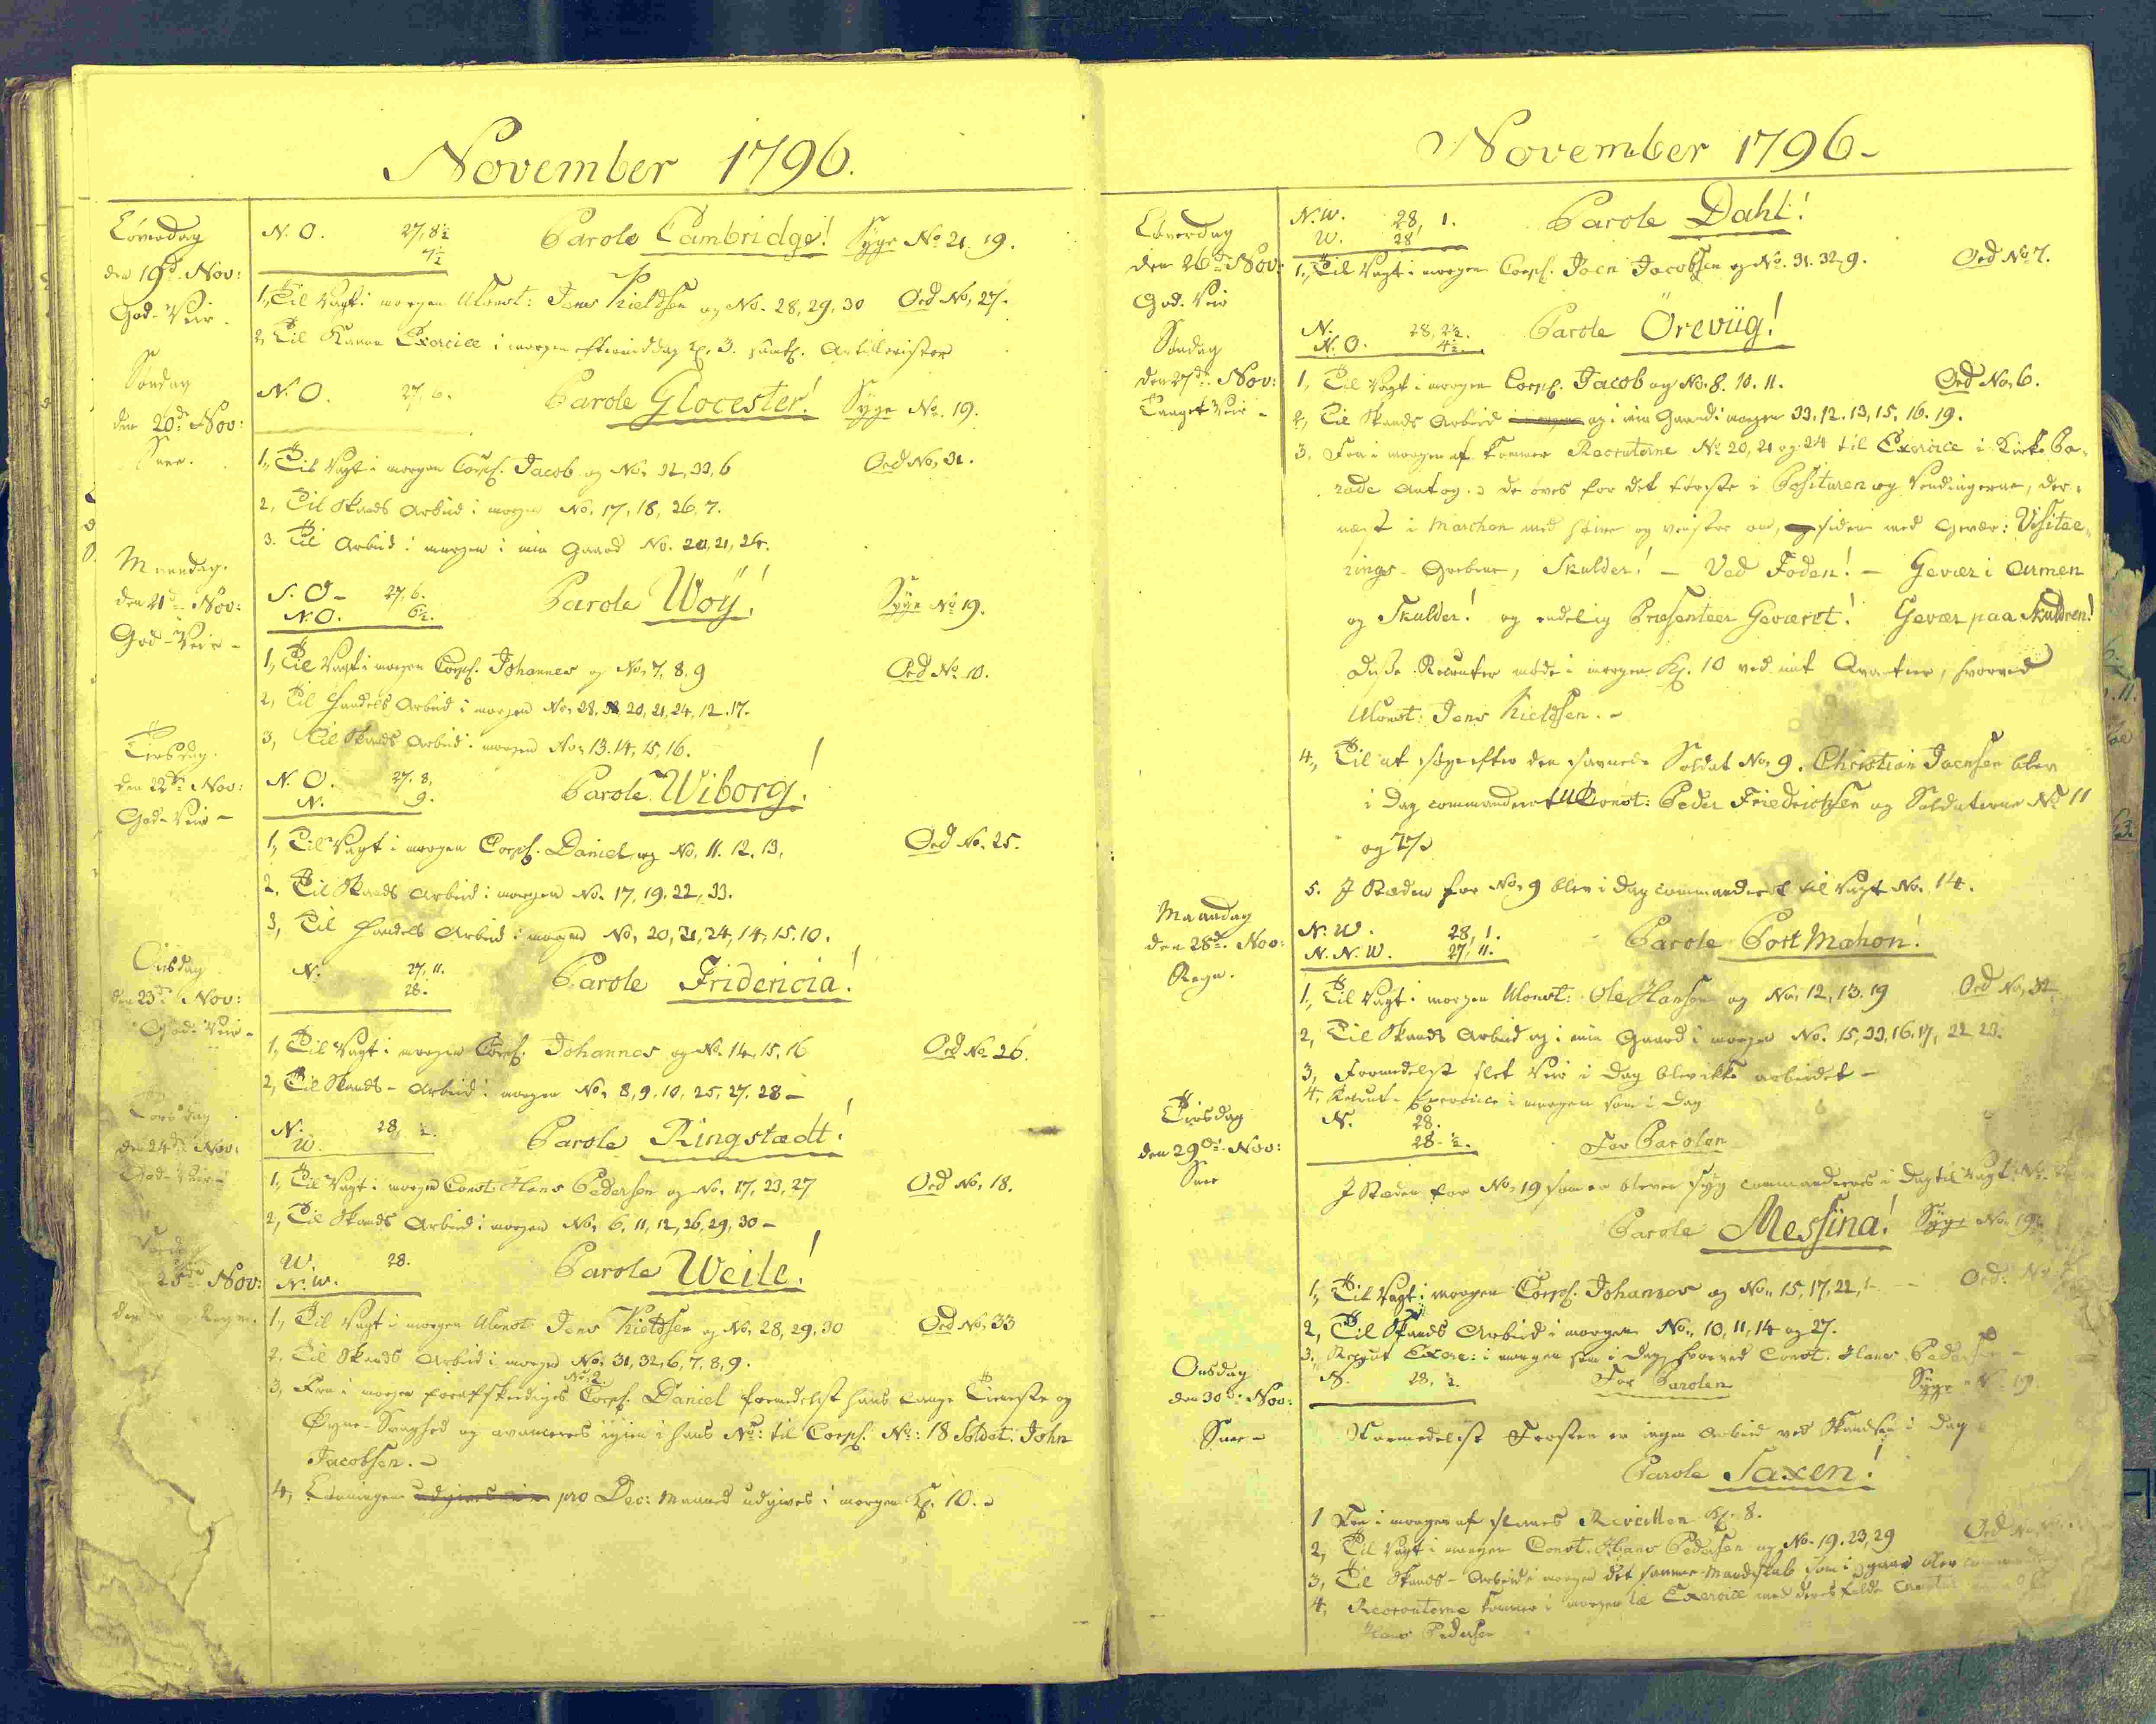 November 1796.
Löverdag
den 19de Nov:
God-Veir.
N. O. 27, 8½
7½
Parole Cambridge! Syge No 21. 19.
1, Til Vagt i morgen UConst: Jens Kieldsen og No. 28, 29, 30 Ord No, 27.
2, Til Kanon Exercice i morgen eftermiddag Kl. 3. samtl. Artillerister
Söndag
den 20de Nov:
Snee.
N. O. 27, 6.
Parole Glocester! Syge No. 19.
1, Til Vagt i morgen Corpl. Jacob og No. 32, 33, 6 Ord No, 31.
2, Til Skands Arbeid i morgen No. 17, 18, 26, 7.
3. Til Arbeid i morgen i min Gaard No. 20, 21, 24.
Maandag.
den 21de Nov:
God-Veir-
S. O- 27, 6.
N. O. 6½.
Parole Woÿ! Syge No 19.
1, Til Vagt i morgen Corpl. Johannes og No. 7, 8. 9 Ord No. 10.
2, Til Handels Arbeid i morgen No, 28. 20, 21, 24, 12. 17.
3, Til Skands Arbeid i morgen No, 13. 14, 15, 16.
Tirsdag.
den 22de Nov:
God-Veir-
N. O. 27. 8,
N. 9.
Parole Wiborg!
1, Til Vagt i morgen Corpl. Daniel og No, 11. 12, 13, Ord No. 25.
2. Til Skands Arbeid i morgen No. 17, 19, 22, 33.
3, Til Handels Arbeid i morgen No, 20, 21, 24, 14, 15. 10.
Onsdag
den 23de Nov:
God-Veir-
N. 27, 11.
28.
Parole Fridericia!
1, Til Vagt i morgen Corpl. Johannes og No. 14, 15, 16 Ord No 26.
2, Til Skands-Arbeid i morgen No, 8, 9. 10, 25, 27. 28-
Torsdag
den 24de Nov:
God-Veir-
N. 28, ½.
W.
Parole Ringstædt!
1, Til Vagt i morgen Const: Hans Pedersen og No. 17, 23, 27 Ord No, 18.
2, Til Skands Arbeid i morgen No, 6, 11, 12, 26, 29, 30-
25de Nov:
W. 28.
N. W.
Parole Weile!
1, Til Vagt i morgen UConst: Jens Kieldsen og No, 28, 29, 30 Ord No, 33
2, Til Skands Arbeid i morgen No, 31, 32, 6, 7, 8, 9.
3, Fra i morgen forafskediges No 2. Corpl. Daniel formedelst hans lange Tieneste og
Øyne-Svaghed og avanceres igien i hans No: til Corpl. No: 18 Soldat. John
Jacobsen.-
4, Lønningen pro Dec: Maaned udgives i morgen Kl. 10.
November 1796-
Löverdag
den 26de Nov:
God-Veir
N. W. 28, 1.
W. 28
Parole Dahl!
1, Til Vagt i morgen Corpl. Joen Jacobsen og No. 31. 32. 9. Ord No 7.
Söndag
den 27de Nov:
Taaget Veir-
N. 28, 2½.
N. O. 4½.
Parole Öreviig!
1, Til Vagt i morgen Corpl. Jacob og No. 8. 10. 11. Ord No, 6.
2, Til Skands Arbeid og i min Gaard i morgen 33, 12. 13, 15, 16. 19.
3. Fra i morgen af kommer Recruterne No 20, 21 og 24 til Exercice i Kirke Pa-
rade Antog. de öves for det første i Posituren og Vendingerne, der-
næst i Marchen med høire og venstre om, siden med Gevær: Visitee-
rings-Grebene, Skulder! - Ved Foden! - Gevær i Armen
og Skulder! og endelig Præsenteer Geværet! Gevær paa Skuldren!
Disse Recruter møde i morgen Kl. 10 ved mit Qvarteer, hvorved
UConst: Jens Kieldsen.-
4, Til at søge efter den savnede Soldat No, 9. Christian Joensen blev
i Dag commanderet UConst: Peder Friedrichsen og Soldaterne No 11
og 27
5. I Stæden for No, 9 blev i Dag commanderet til Vagt No. 14.
Maandag
den 28de Nov:
Regn.
N. W. 28, 1.
N. N. W. 27, 11.
Parole Port Mahon!
1, Til Vagt i morgen UConst: Ole Hansen og No, 12, 13. 19 Ord No, 32
2, Til Skands Arbeid og i min Gaard i morgen No. 15, 33, 16. 17, 22 23.
3, Formedelst slet Veir i Dag blev ikke arbeidet-
4, Recrut-Exercice i morgen som i Dag
Tirsdag
den 29de Nov:
Snee
N. 28.
28. ½.
For Parolen
I Stæden for No, 19 som er bleven syg commanderes i Dag til Vagt No.
Parole Messina! Syge No. 19.
1, Til Vagt i morgen Corpl. Johannes og No, 15, 17, 22, Ord:
2, Til Skands Arbeid i morgen No, 10, 11, 14 og 27.
3. Recrut Exerc: i morgen som i Dag, hvorved Const. Hans Pedersen-
Onsdag
den 30de Nov:
Snee-
N. 28, ½.
For Parolen Syge No. 19.
Formedelst Frosten er ingen Arbeid ved Skandsen i Dag
Parole Saxen!
1 Fra i morgen af slaaes Reveillen Kl. 8.
2, Til Vagt i morgen Const. Hans Pedersen og No. 19. 23, 29 Ord
3, Til Skands-Arbeid i morgen det samme Mandskab som i gaar blev
4, Recruterne kommer i morgen til Exercice med deres
Hans Pedersen